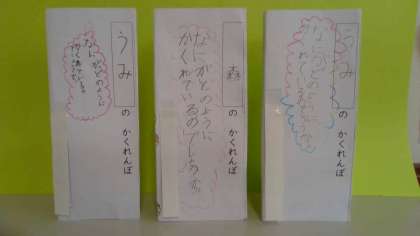 うみのかくれんぼ
なにがどのように
かくれている
森のかくれんぼ
なにがどのように
かくれているのでしょうか
うみのかくれんぼ
なにがどのように
かくれ